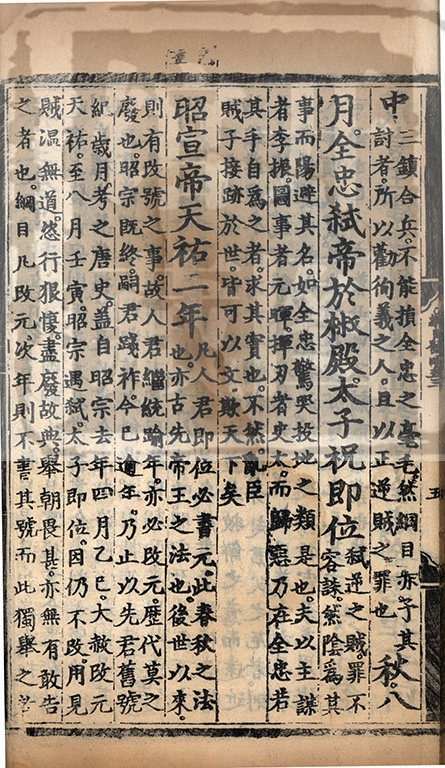 中
三鎮合兵不能損全忠之毫毛然綱目亦予其
討者所以勸徇義之人且以正逆賊之罪也
秋八
月全忠弑帝於椒殿太子祝即位
弑逆之賊罪不
容誅然陰爲其
事而陽避其名如全忠驚哭投地之類是也夫以主謀
者李振圖事者元暉揮刃者史太而歸惡乃在全忠若
其手自爲之者求其實也不然亂臣
賊子接跡於世皆可以文欺天下矣
昭宣帝天祐二年
凡人君即位必書元此春秋之法
也亦古先帝王之法也後世以來
則有改號之事故人君繼統踰年亦必改元歷代莫之
廢也昭宗既終嗣君踐祚今已逾年乃止以先君舊號
紀歲月考之唐史蓋自昭宗去年四月乙巳大赦改元
天祐至八月壬寅昭宗遇弑太子即位因仍不改用見
賊溫無道恣行狠愎盡廢故典舉朝畏甚亦無有敢告
之者也綱目凡改元次年則不書其號而此獨舉之者
五